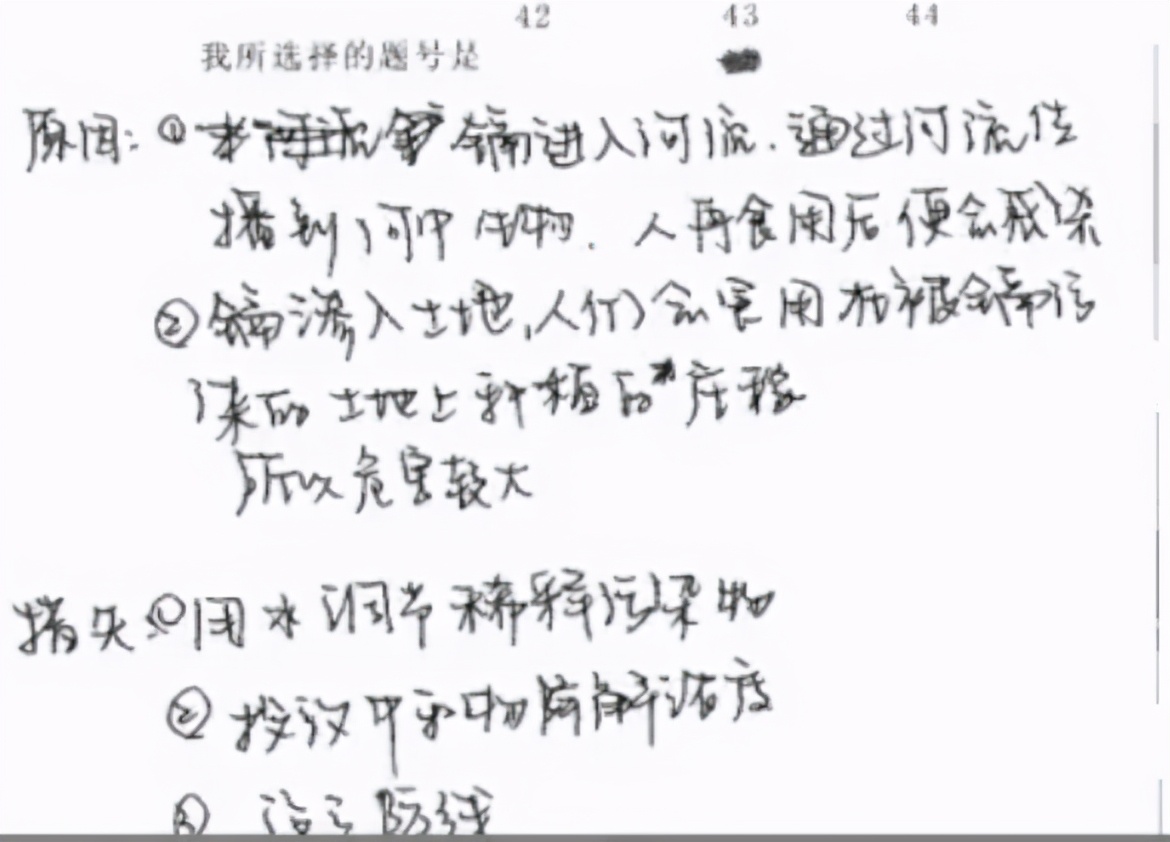 42 43 44
我所选择的题号是
原因：① 镉进入河流．通过河流传
播到河中生物．人再食用后便会感染
②镉渗入土地,人们会食用在被镉污
染的土地上种植的庄稼
所以危害较大
措失:①用水调节稀释污染物
② 投放中和物降解浓度
③ 设立防线